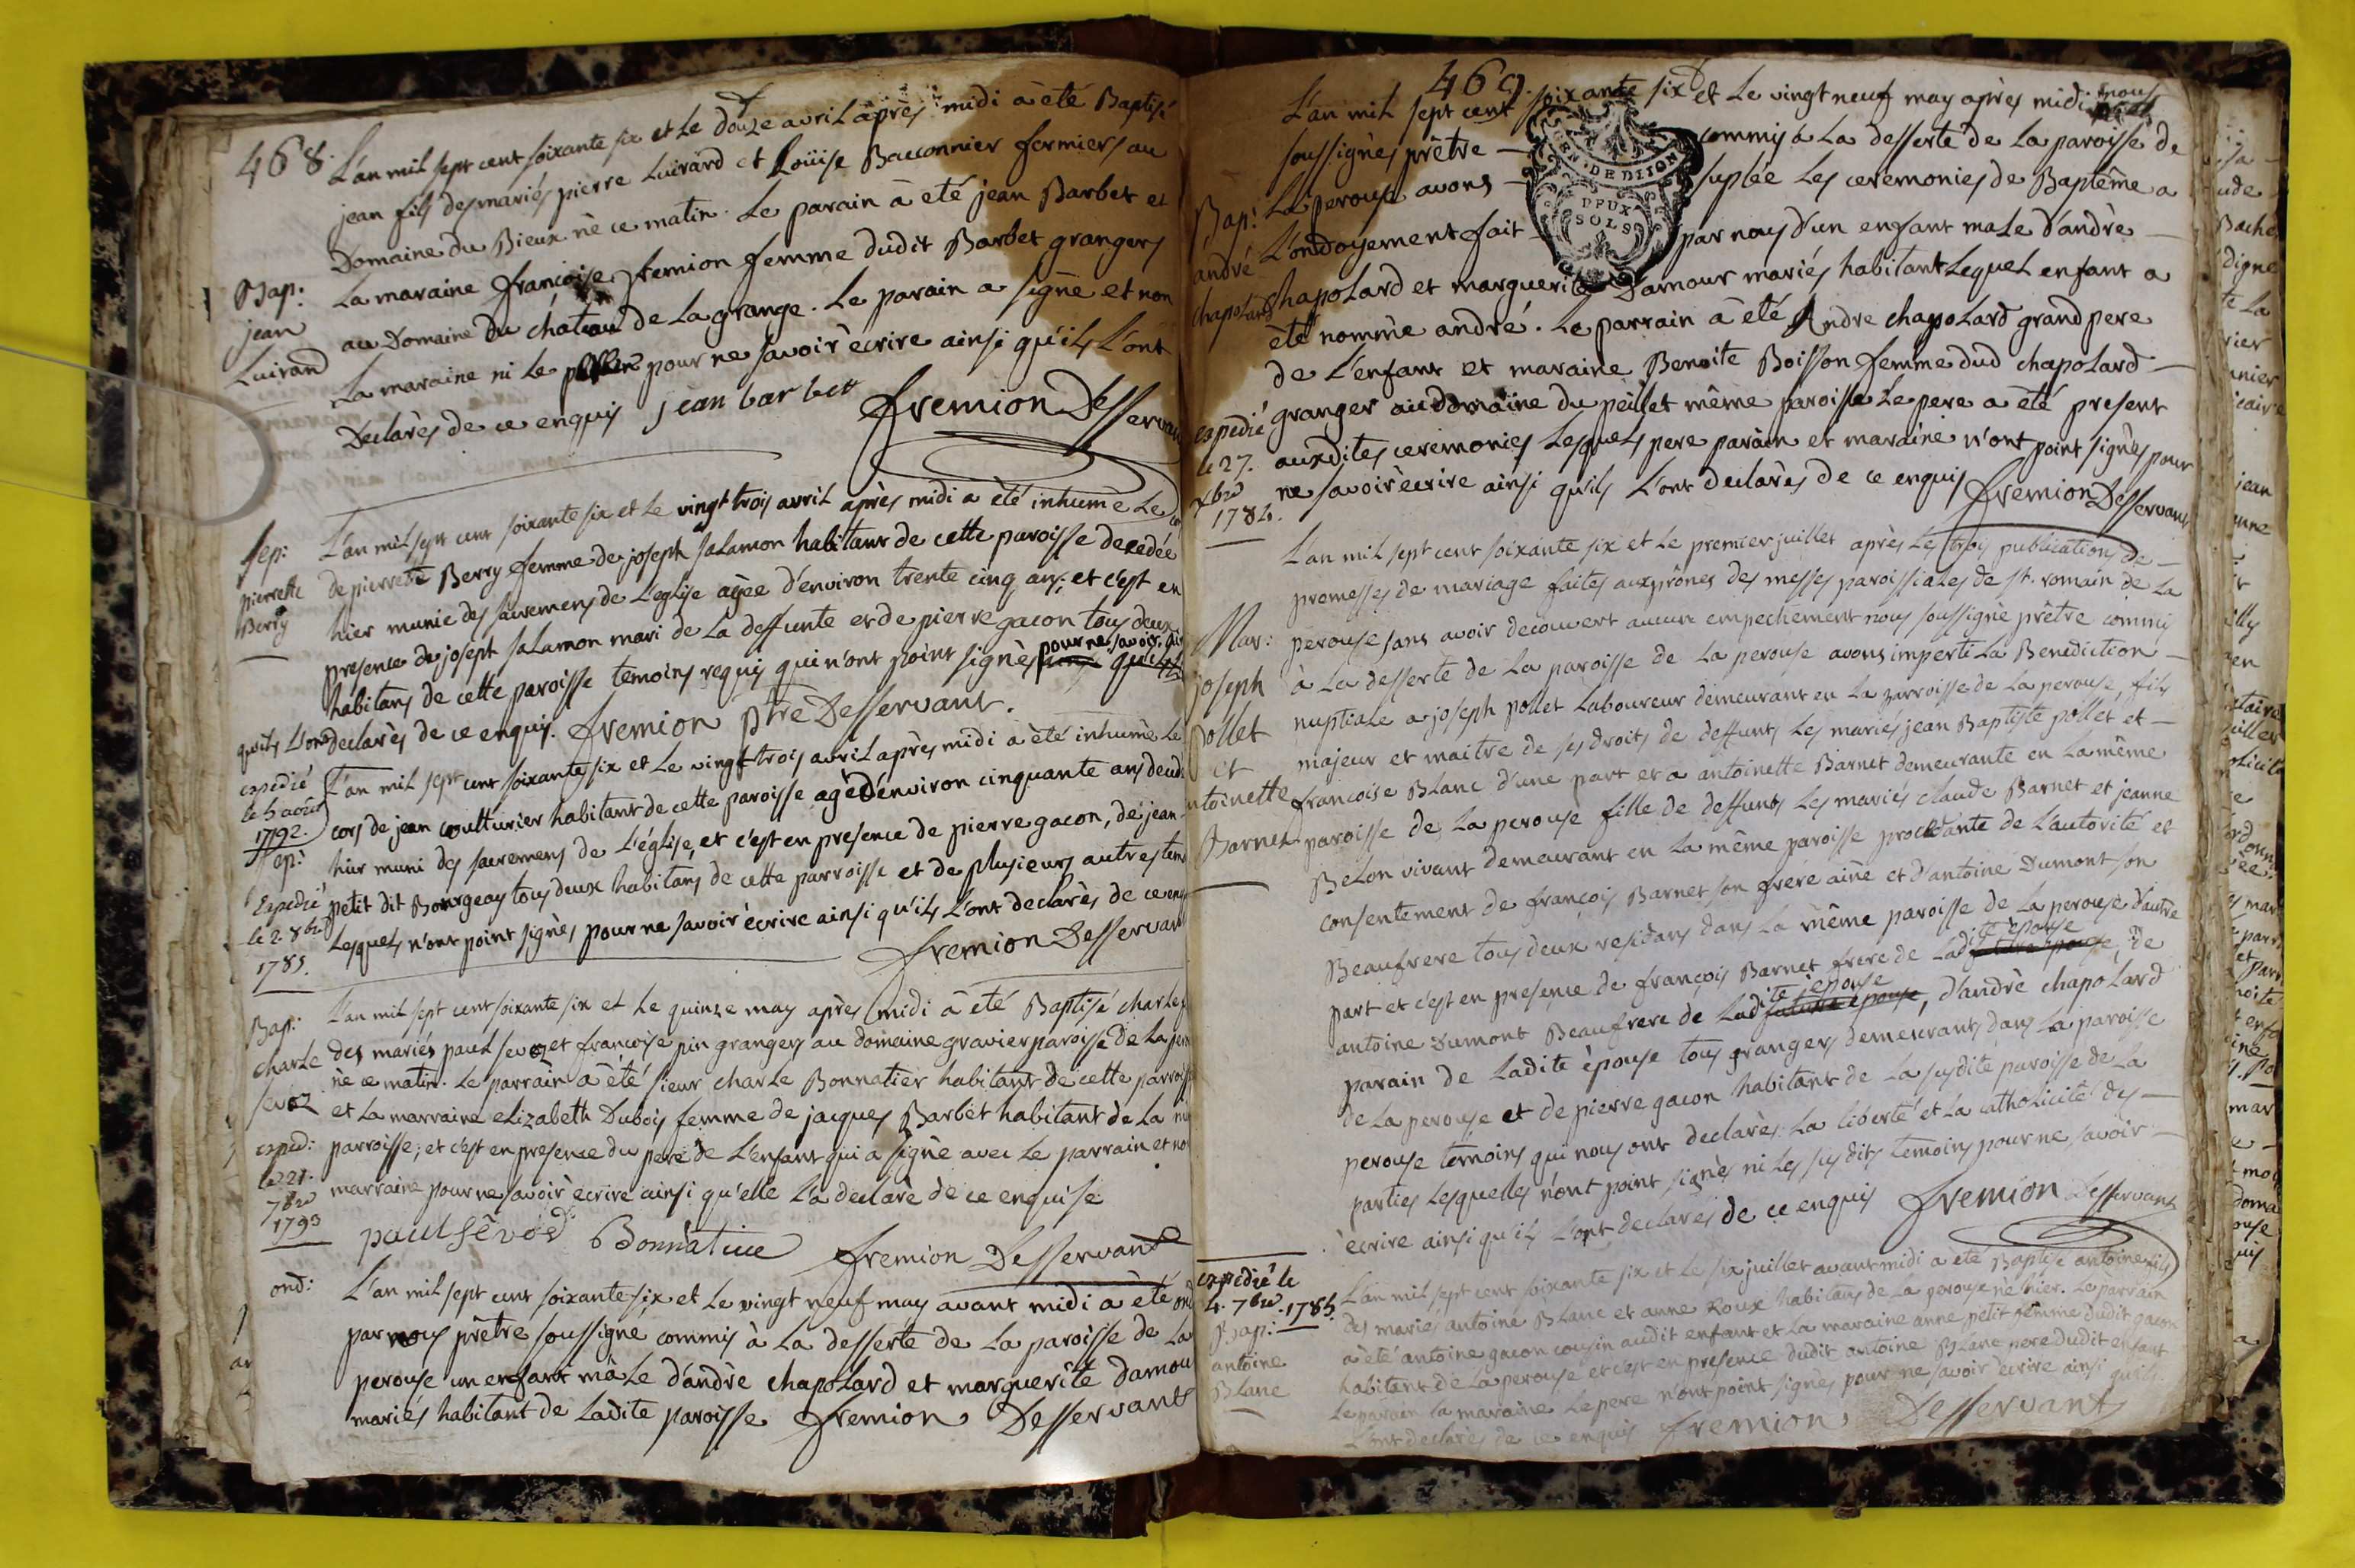 468.
L'an mil sept cent soixante six et Le douze avril après midi a été Baptisé
jean fils des mariés pierre Luirard et Loüise Bacconnier fermiers au
Domaine du Bieux né ce matin. Le parain a été jean Barbet et
Bap:
jean
Luirard
La maraine francoise fremion femme dudit Barbet grangers
au Domaine du château de La grange. Le parain a signé et non
La maraine ni Le pour ne savoir écrire ainsi qu'ils L'ont
Declarés de ce enquis jean barbett
fremion Desservant
Sep:
pierrette
Berry
L'an mil sept cent soixante six et Le vingt trois avril après midi a été inhumé Le
de pierrette Berry femme de joseph saLamon habitant de cette paroisse decedée
hier munie des sacremens de L'eglise agée d'environ trente cinq ans; et c'est en
presence de joseph saLamon mari de La deffunte et de pierre gacon tous deux
habitans de cette paroisse temoins requis qui n'ont point signés pour ne savoir
qu'ils L'ont declarés de ce enquis. fremion ptre Desservant.
expedié
le 5 août
1792.
Sep:
Expedié
le 2 8bre
1785.
L'an mil sept cent soixante six et Le vingt trois avril après midi a été inhumé Le
cors de jean coulturier habitant de cette paroisse agé d'environ cinquante ans
hier muni des sacremens de L'église, et c'est en presence de pierre gacon, de jean
petit dit Bourgeay tous deux habitans de cette parroisse et de plusieurs autres
Lesquels n'ont point signés pour ne savoir écrire ainsi qu'ils L'ont declarés de ce
fremion Desservant
Bap:
charle
sevoz
exped:
le 21.
7bre
1793
L'an mil sept cent soixante six et Le quinze may après midi a été Baptisé charles
des mariés paul sevoz et francoise pin grangers au domaine gravier paroisse de La
né ce matin. Le parrain a été sieur charle Bonnatier habitant de cette parroisse
et La marraine elizabeth Dubois femme de jacques Barbet habitant de La
parroisse; et c'est en presence du pere de L'enfant qui a signé avec Le parrain et non
marraine pour ne savoir ecrire ainsi qu'elle L'a declaré de ce enquise
paul sêvoz Bonnatier fremion Desservant
ond:
L'an mil sept cent soixante six et Le vingt neuf may avant midi a été
par nous prêtre soussigné commis à La desserte de La paroisse de La
perouse un enfant mâle d'andré chapolard et marguerite Damour
mariés habitant de Ladite paroisse fremion Desservant
469.
L'an mil sept cent soixante six et Le vingt neuf may après midi nous
soussignés prêtre commis à La desserte de La paroisse de
Bap:
andré
chapolard
La perouse avons suplée Les ceremonies de Baptême a
L'ondoyement fait par nous d'un enfant male d'andré
EN. DE DIJON
DEUX
SOLS
chapolard et marguerite Damour mariés habitant Lequel enfant a
été nommé andré. Le parrain a été Andre chapolard grand pere
de L'enfant et maraine Benoite Boisson femme dud chapolard
expedié
le 27.
xbre
1784.
granger au domaine du peillet même paroisse Le pere a été present
auxdites ceremonies Lesquels pere parain et maraine n'ont point signés pour
ne savoir écrire ainsi qu'ils L'ont declarés de ce enquis fremion Desservant
Mar:
joseph
pollet
et
antoinette
Barnet
L'an mil sept cent soixante six et Le premier juillet après Les trois publications de
promesses de mariage faites aux prônes des messes paroissiales de st. romain de La
perouse sans avoir decouvert aucun empechement nous soussigné prêtre commis
à La desserte de La paroisse de La perouse avons imperti La Benediction
nuptiale a joseph pollet Laboureur demeurant en La parroisse de La perouse, fils
majeur et maitre de ses droits de deffunts Les mariés jean Baptiste pollet et
francoise Blanc d'une part et a antoinette Barnet demeurante en La même
paroisse de La perouse fille de deffunts Les mariés claude Barnet et jeanne
Belon vivant demeurant en La même paroisse procedante de L'autorité et
consentement de françois Barnet son frere ainé et d'antoine Dumont son
Beaufrere tous deux residans dans La même paroisse de La perouse d'autre
part et c'est en presence de françois Barnet frere de Ladite épouse future épouse, de
antoine Dumont Beaufrere de Ladite épouse future épouse, d'andré chapolard
parain de Ladite épouse tous grangers demeurants dans La paroisse
de La perouse et de pierre gacon habitant de La susdite paroisse de La
perouse temoins qui nous ont declarés La liberté et La catholicité des
parties Lesquelles n'ont point signés ni Les susdits temoins pour ne savoir
écrire ainsi qu'ils L'ont declarés de ce enquis fremion Desservant
expedié le
4. 7bre. 1785.
Bap:
antoine
Blanc
L'an mil sept cent soixante six et Le six juillet avant midi a été Baptisé antoine fils
des mariés antoine Blanc et anne Roux habitans de La perouse né hier. Le parrain
a été antoine gacon cousin audit enfant et La maraine anne petit femme dudit gacon
habitant de La perouse et c'est en presence dudit antoine Blanc pere dudit enfant
Le parain La maraine Le pere n'ont point signés pour ne savoir écrire ainsi qu'ils
L'ont declarés de ce enquis fremion Desservant